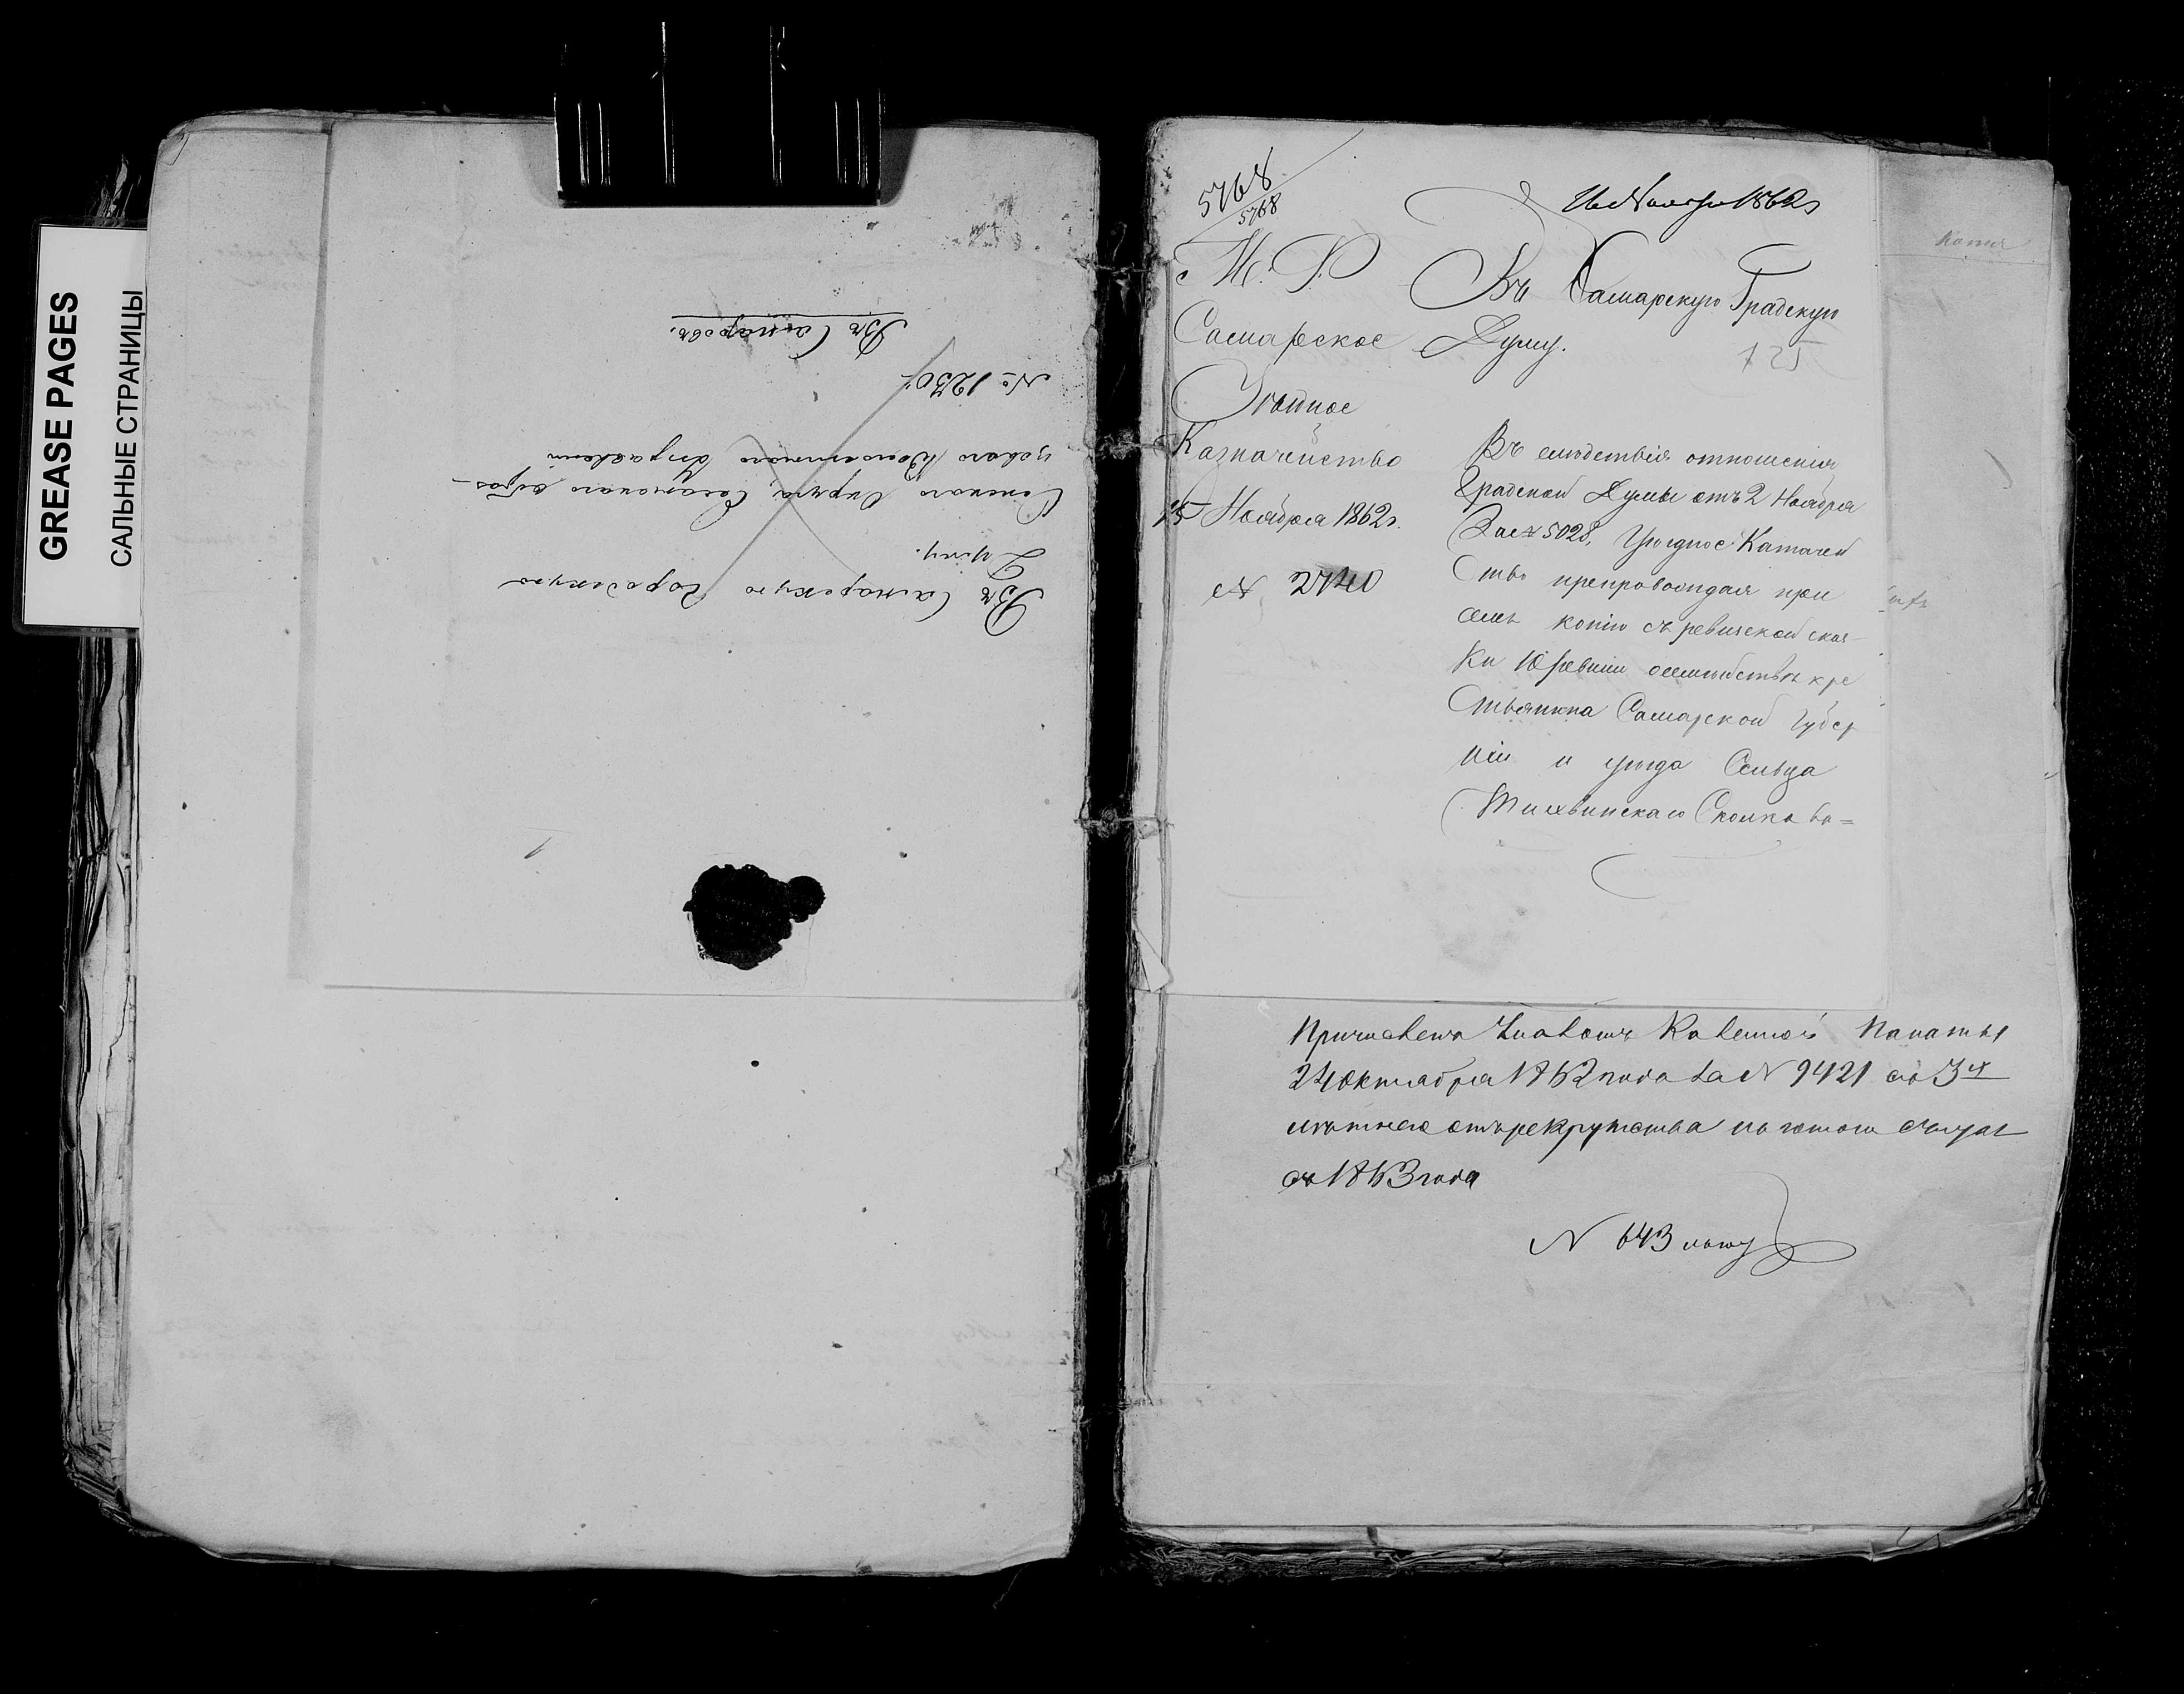 GREASE PAGES
САЛЬНЫЕ СТРАНИЦЫ
Въ Самарскую Городскую
Думу.
Сокского Округа, Самарского образ-
цоваго Волостнаго Правленія
№ 1230
Въ Самаровъ.
5768
5768
16 Ноября 1862 г
М. Ф.
Самарское
Уѣздное
Казначейство
15 Ноября 1862 г.
№ 2740
Въ Самарскую Градскую
Думу.
125
Въ слѣдствіе отношенія
Градской Думы отъ 2 Ноября
За № 5028, Уѣздное Казначей
Ство препровождая при
семъ копію съ ревизской сказ-
ки 10 ревизіи о семействѣ кре
Стьянина Самарской Губер
ніи и уѣзда Сельца
Тихвинскаго
Копія
Причисленъ Указомъ Казенной Палаты
24 Октября 1862 года За № 9421 съ 3х
лѣтнею отъ рекрутства льготою считая
съ 1863 года
№ 643